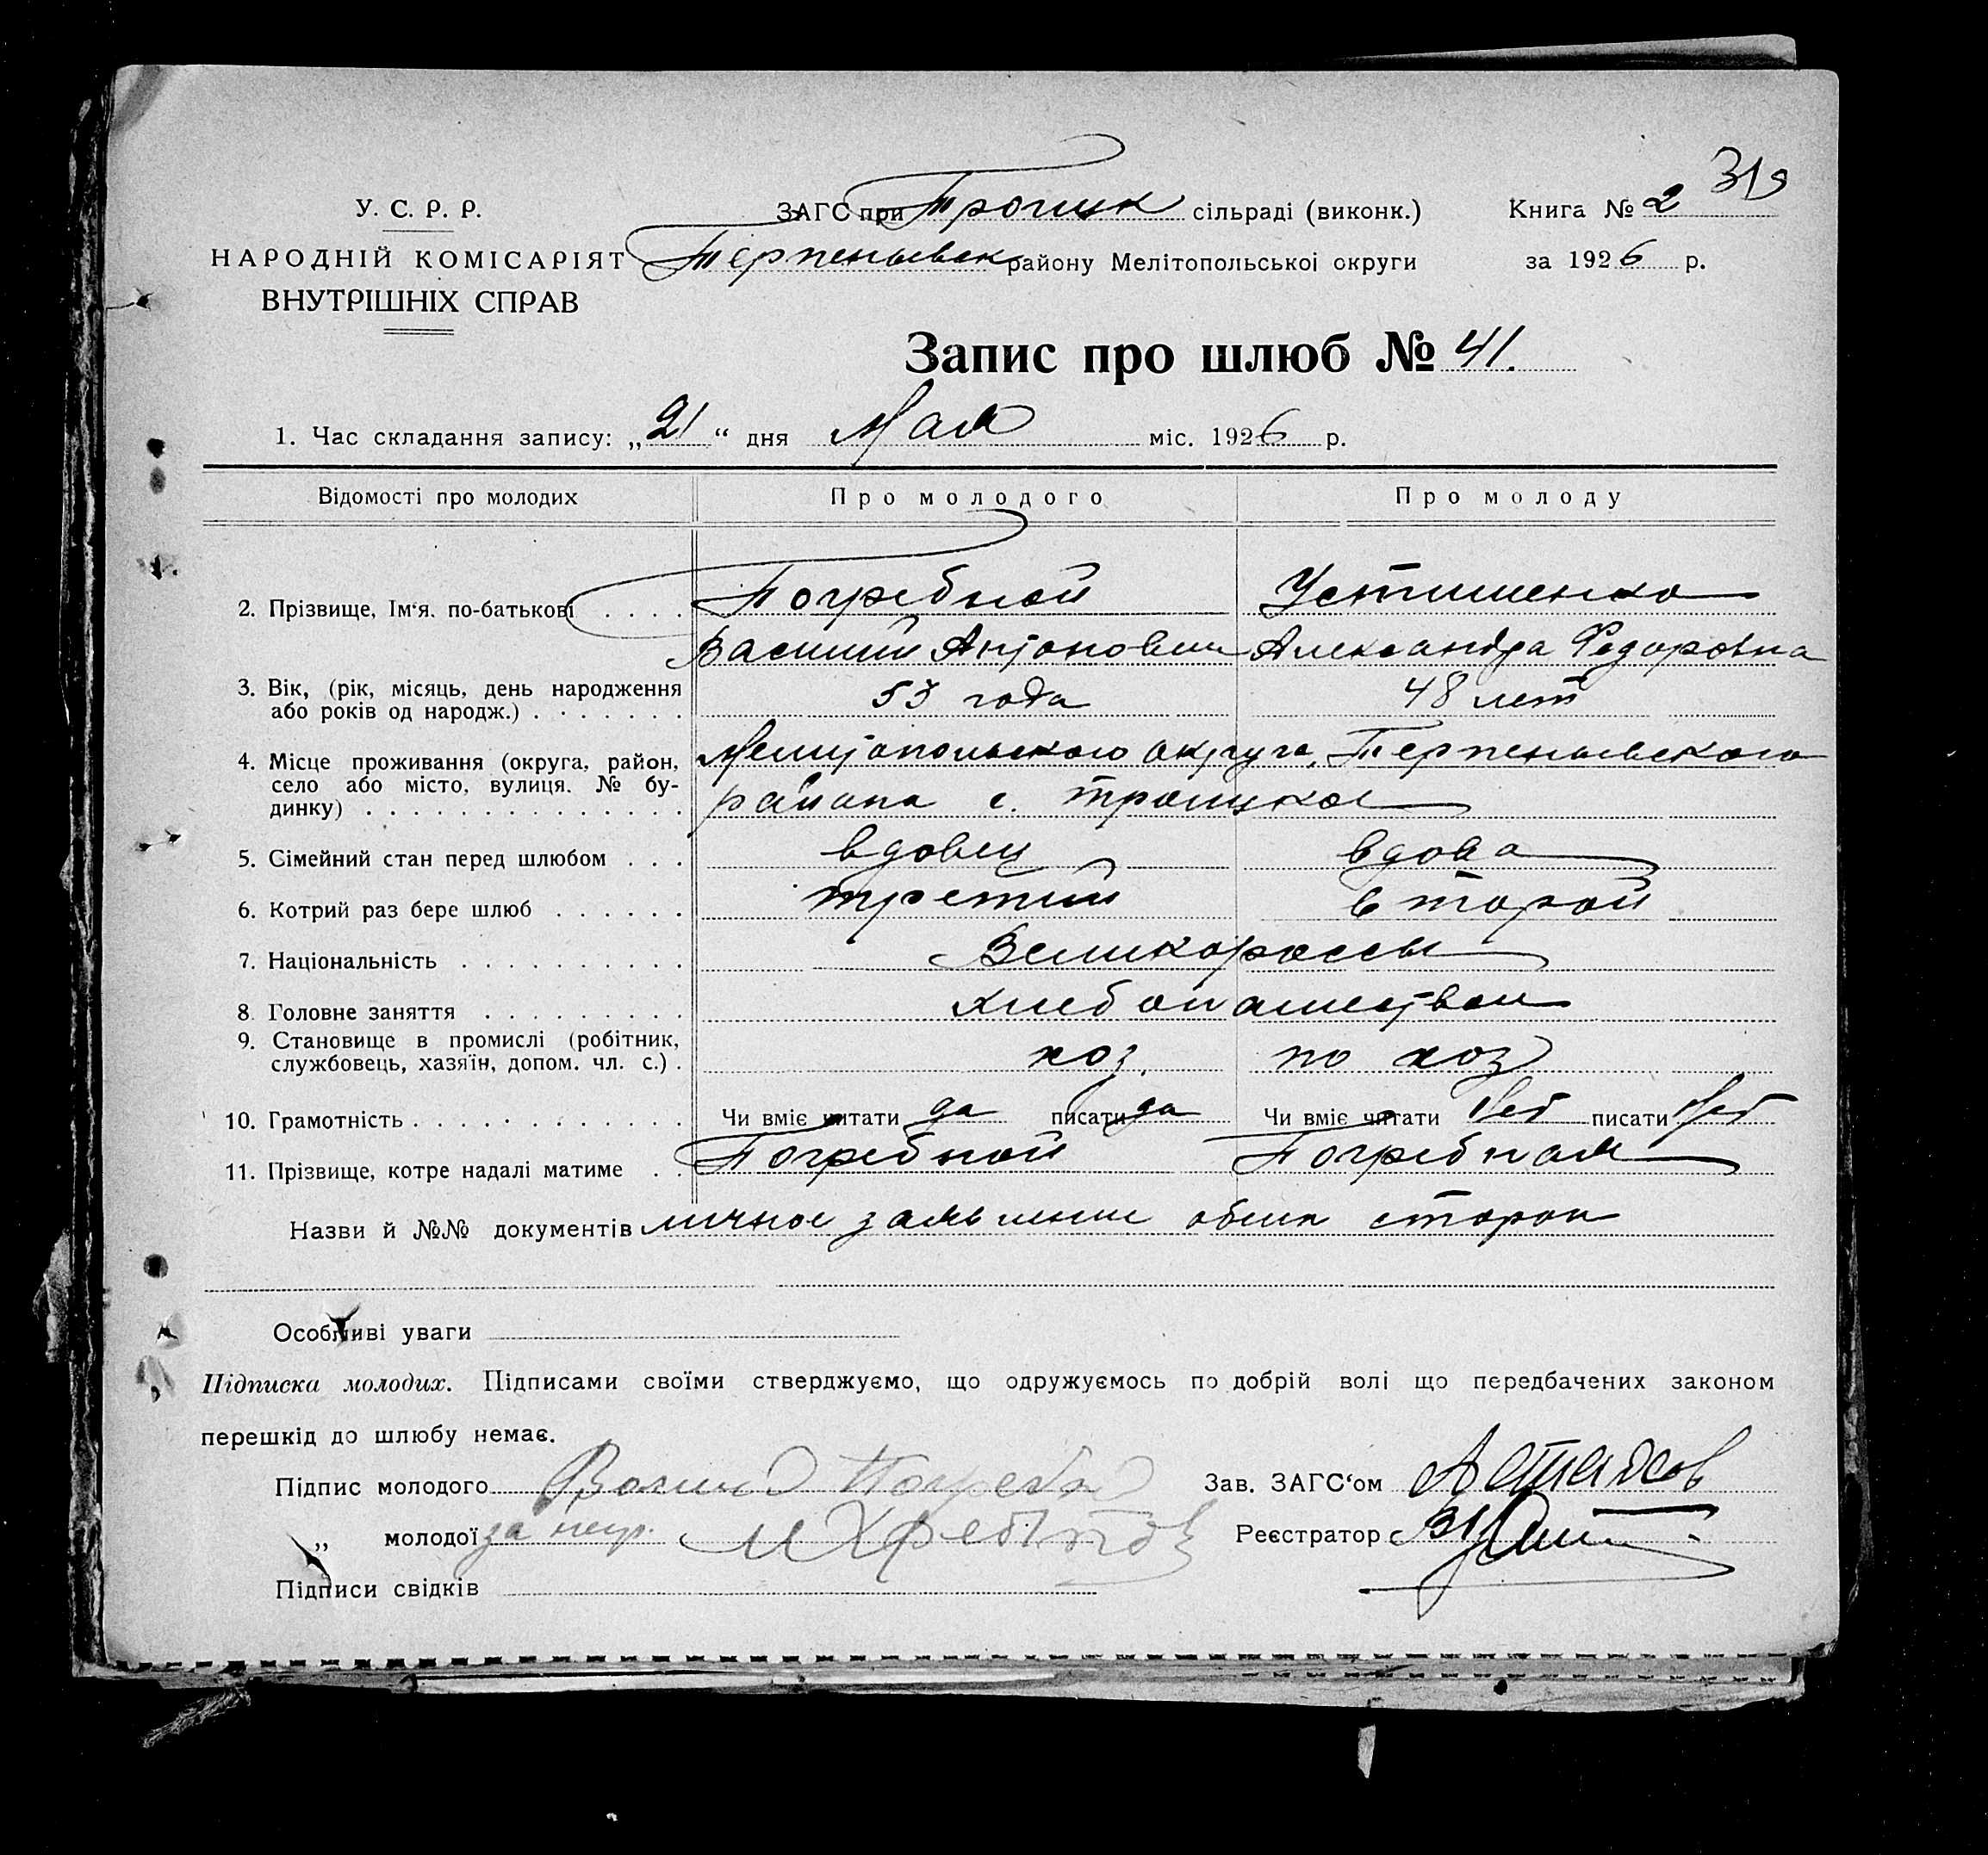 319
У. С. Р. Р.
НАРОДНІЙ КОМІСАРІЯТ
ВНУТРІШНІХ СПРАВ
ЗАГС при Троицк сільраді (виконк.)
Терпеньевск району Мелітопольської округи
Книга № 2
за 1926 р.
Запис про шлюб № 41.
1. Час складання запису: „21“ дня Мая міс. 1926 р.
Відомості про молодих Про молодого Про молоду
2. Прізвище, Ім‘я. по-батькові . . . . Погребной Устименко
Василий Антонович Александра Федоровна
3. Вік, (рік, місяць, день народження
або років од народж.) . . . . . . . 53 года 48 лет
4. Місце проживання (округа, район, Мелитопольского округа, Терпеньевского
село або місто, вулиця. № бу-
динку) . . . . . . . . . . . . . . района с. Троицкое
5. Сімейний стан перед шлюбом . . . вдовец вдова
6. Котрий раз бере шлюб . . . . . . третий второй
7. Національність . . . . . . . . . . Великороссы
8. Головне заняття . . . . . . . . . хлебопашеством
9. Становище в промислі (робітник,
службовець, хазяїн, допом. чл. с.) . хоз. по хоз
10. Грамотність . . . . . . . . . . . . Чи вміє читати да писати да Чи вміє читати нет писати нет
11. Прізвище, котре надалі матиме . . Погребной Погребная
Назви й №№ документів личное заявление обеих сторон
Особливі уваги
Підписка молодих. Підписами своїми стверджуємо, що одружуємось по добрій волі що передбачених законом
перешкід до шлюбу немає.
Підпис молодого Зав. ЗАГС‘ом
„ молодої за негр. Реєстратор
Підписи свідків